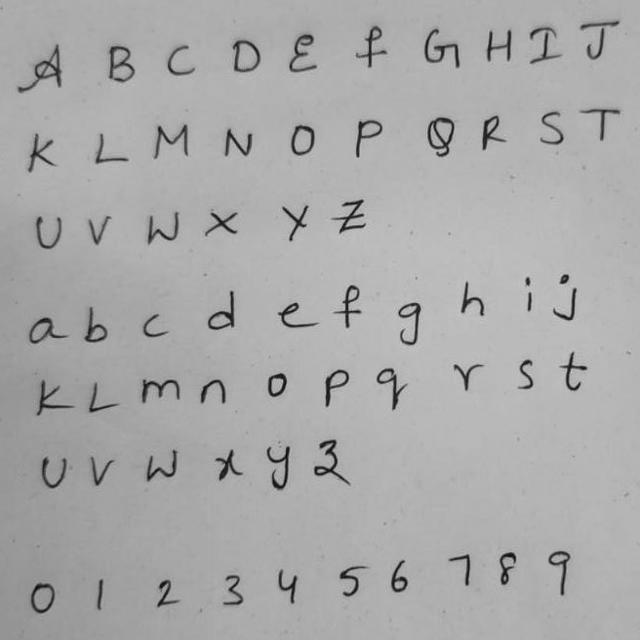 A B C D E f G H I J
K L M N O P Q R S T
U V W X Y Z
a b c d e f g h i j
K L m n o p q r s t
U V W x y z
0 1 2 3 4 5 6 7 8 9